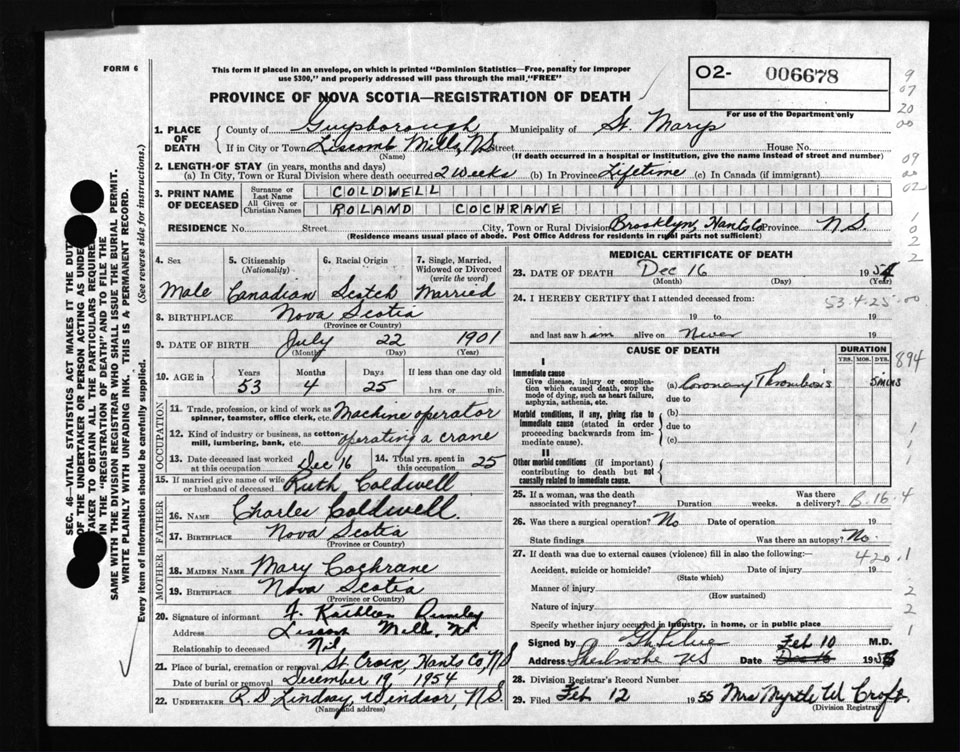 FORM 6
This form if placed in an envelope, on which is printed "Dominion Statistics—Free, penalty for improper
use $300," and properly addressed will pass through the mail, "FREE"
O2- 006678
For use of the Department only
PROVINCE OF NOVA SCOTIA—REGISTRATION OF DEATH
1. PLACE OF DEATH
County of Guysborough Municipality of St. Marys
If in City or Town Liscomb Mills, N.S. Street House No.
(Name) (If death occurred in a hospital or institution, give the name instead of street and number)
2. LENGTH OF STAY (in years, months and days)
(a) In City, Town or Rural Division where death occurred 2 weeks (b) In Province Lifetime (c) In Canada (if immigrant)
3. PRINT NAME OF DECEASED
Surname or Last Name COLDWELL
All Given or Christian Names ROLAND COCHRANE
RESIDENCE No. Street City, Town or Rural Division Brooklyn, Hants Co Province N.S.
(Residence means usual place of abode. Post Office Address for residents in rural parts not sufficient)
4. Sex Male
5. Citizenship (Nationality) Canadian
6. Racial Origin Scotch
7. Single, Married, Widowed or Divorced (write the word) Married
8. BIRTHPLACE Nova Scotia
(Province or Country)
9. DATE OF BIRTH July 22 1901
(Month) (Day) (Year)
10. AGE in Years Months Days If less than one day old
53 4 25 hrs. or min.
OCCUPATION
11. Trade, profession, or kind of work as spinner, teamster, office clerk, etc. Machine operator
12. Kind of industry or business, as cotton-mill, lumbering, bank, etc. operating a crane
13. Date deceased last worked at this occupation Dec 16 14. Total yrs. spent in this occupation 25
15. If married give name of wife or husband of deceased Ruth Coldwell
FATHER
16. NAME Charles Coldwell.
17. BIRTHPLACE Nova Scotia
(Province or Country)
MOTHER
18. MAIDEN NAME Mary Cochrane
19. BIRTHPLACE Nova Scotia
(Province or Country)
20. Signature of informant F. Kathleen
Address Liscomb Mills, NS
Relationship to deceased Nil
21. Place of burial, cremation or removal St Croix, Hants Co, N.S
Date of burial or removal December 19, 1954
22. UNDERTAKER R.D. Lindsay, Windsor, N.S.
(Name and address)
MEDICAL CERTIFICATE OF DEATH
23. DATE OF DEATH Dec 16 1954
(Month) (Day) (Year)
53.4.25.00
24. I HEREBY CERTIFY that I attended deceased from:
19 to 19
and last saw him alive on Never 19
CAUSE OF DEATH
DURATION
YRS. MOS. DYS.
I
Immediate cause
Give disease, injury or complication which caused death, NOT the mode of dying, such as heart failure, asphyxia, asthenia, etc.
(a) Coronary Thrombosis 5 mins
due to
Morbid conditions, if any, giving rise to immediate cause (stated in order proceeding backwards from immediate cause).
(b)
due to
(c)
II
Other morbid conditions (if important) contributing to death but not causally related to immediate cause.
25. If a woman, was the death associated with pregnancy? Duration weeks. Was there a delivery?
B-16-4
26. Was there a surgical operation? No Date of operation 19
State findings Was there an autopsy? No.
27. If death was due to external causes (violence) fill in also the following:—
420.1
Accident, suicide or homicide? Date of injury 19
(State which)
Manner of injury
(How sustained)
Nature of injury
Specify whether injury occurred in industry, in home, or in public place
Signed by M.D.
Feb 10
Address Sherbrooke NS Date Dec 16 195
28. Division Registrar's Record Number
29. Filed Feb 12 1955 Mrs Myrtle W Croft.
(Division Registrar)
SEC. 46—VITAL STATISTICS ACT MAKES IT THE DUTY
OF THE UNDERTAKER OR PERSON ACTING AS UNDER
TAKER TO OBTAIN ALL THE PARTICULARS REQUIRED
IN THE "REGISTRATION OF DEATH" AND TO FILE THE
SAME WITH THE DIVISION REGISTRAR WHO SHALL ISSUE THE BURIAL PERMIT.
WRITE PLAINLY WITH UNFADING INK. THIS IS A PERMANENT RECORD.
Every item of information should be carefully supplied. (See reverse side for instructions.)
9
07
20
00
09
00
02
1
0
2
2
894
1
1
1
1
2
2
1